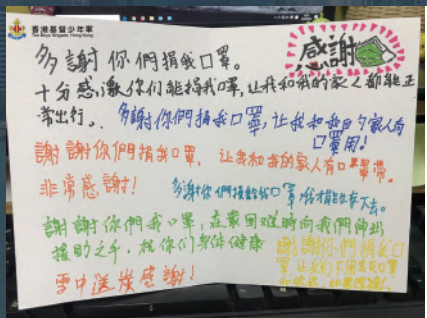 香港基督少年軍
The Boys' Brigade, Hong Kong
感謝
多謝你們捐我口罩。
十分感激你们能捐我口罩,让我和我的家人都能正
常出行。
多謝你們捐我口罩,让我和我的家人有
口罩用!
謝謝你們捐我口罩,让我和我的家人有口罩帶。
非常感謝!
多謝你們捐給我口罩,我才能生存下去。
謝謝你們我口罩,在家困难時向我們伸出
援助之手,祝你们身体健康
謝謝你們捐我口
罩,让我们不用
雪中送炭感謝!